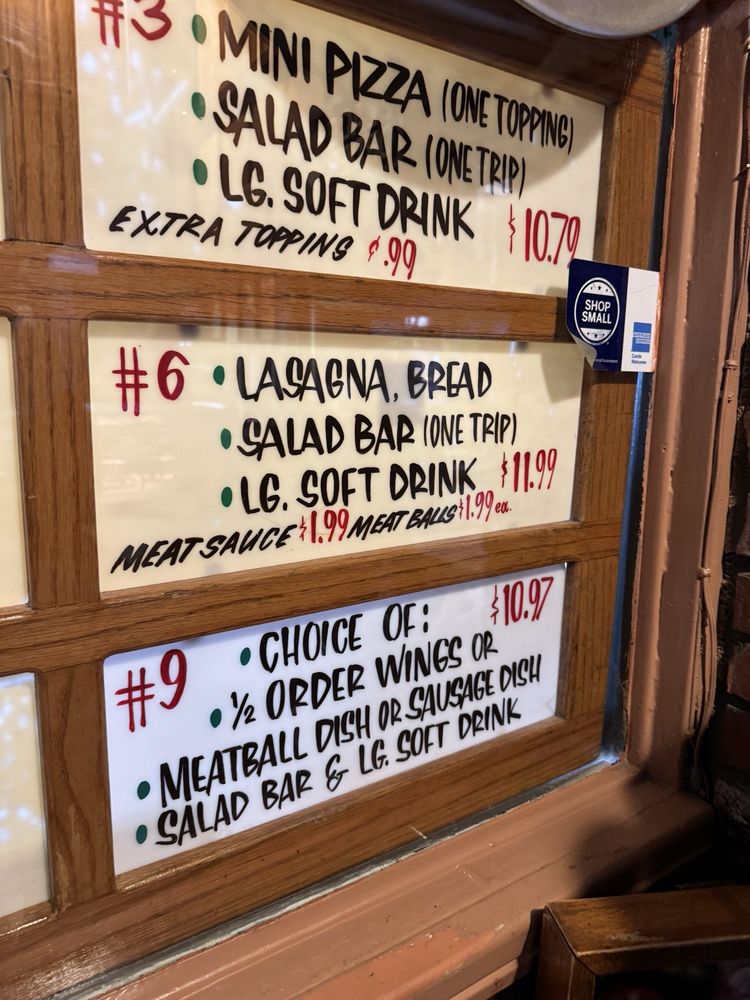 #3 • MINI PIZZA (ONE TOPPING)
• SALAD BAR (ONE TRIP)
• LG. SOFT DRINK $10.79
EXTRA TOPPINS ¢.99
SHOP
SMALL
AMERICAN EXPRESS
Cards
Welcome
#6 • LASAGNA, BREAD
• SALAD BAR (ONE TRIP)
• LG. SOFT DRINK $11.99
MEAT SAUCE $1.99 MEAT BALLS $1.99 ea.
#9 • CHOICE OF: $10.97
• ½ ORDER WINGS OR
• MEATBALL DISH OR SAUSAGE DISH
• SALAD BAR & LG. SOFT DRINK